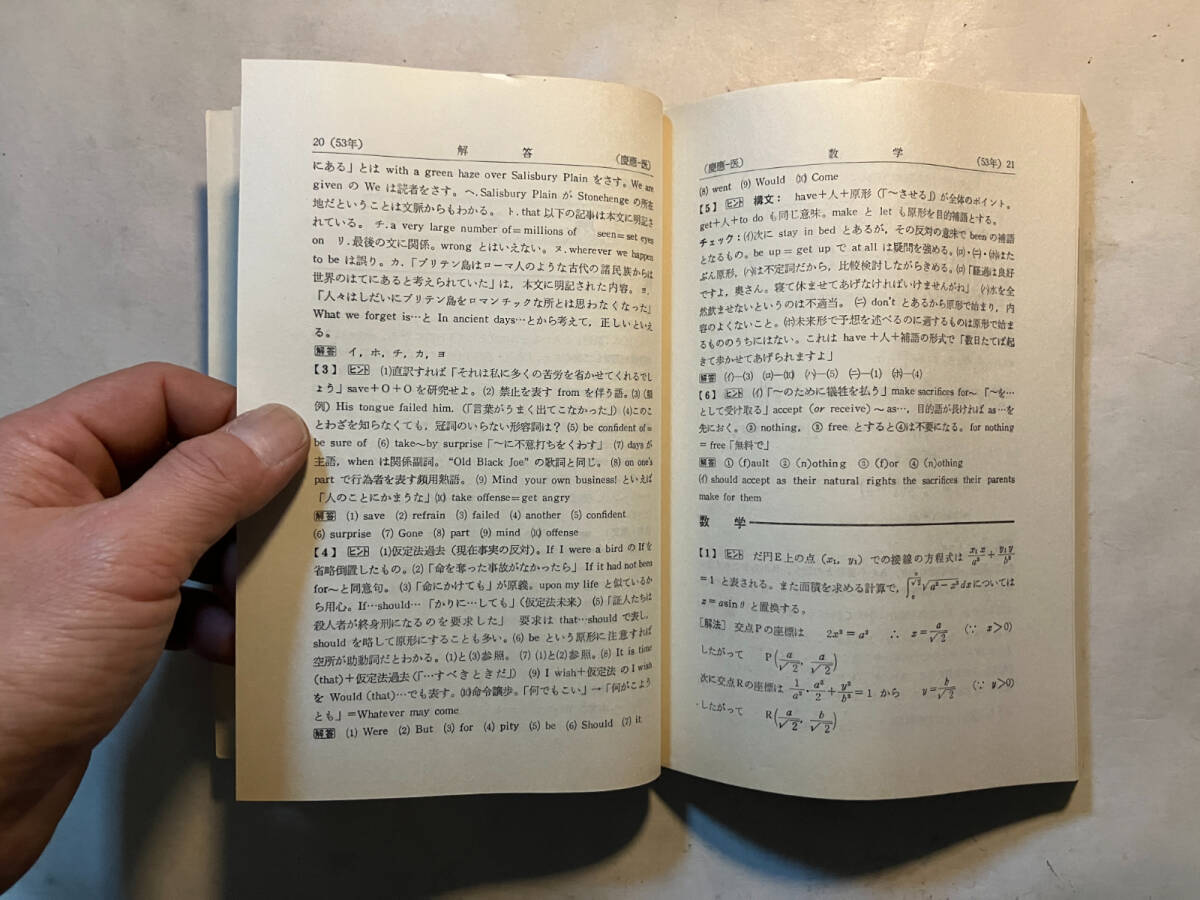 20（53年）　解　答　（慶應―医）
にある」とは with a green haze over Salisbury Plain をさす。We are
given の We は読者をさす。ヘ．Salisbury Plain が Stonehenge の所在
地だということは文脈からもわかる。 ト．that 以下の記事は本文に明記さ
れている。 チ．a very large number of＝millions of　seen＝set eyes
on　リ．最後の文に関係。wrong とはいえない。ヌ．wherever we happen
to be は誤り。カ．「ブリテン島はローマ人のような古代の諸民族からは
世界のはてにあると考えられていた」は，本文に明記された内容。ヨ．
「人々はしだいにブリテン島をロマンチックな所とは思わなくなった」
What we forget is…と In ancient days…とから考えて，正しいといえ
る。
解答　イ，ホ，チ，カ，ヨ
【3】 ヒント　(1)直訳すれば「それは私に多くの苦労を省かせてくれるでし
ょう」save＋O＋O を研究せよ。(2) 禁止を表す from を伴う語。(3)（類
例）His tongue failed him.（「言葉がうまく出てこなかった」）(4)このこ
とわざを知らなくても，冠詞のいらない形容詞は？ (5) be confident of＝
be sure of　(6) take〜by surprise「〜に不意打ちをくわす」 (7) days が
主語，when は関係副詞。“Old Black Joe” の歌詞と同じ。(8) on one's
part で行為者を表す頻用熟語。 (9) Mind your own business! といえば
「人のことにかまうな」(10) take offense＝get angry
解答　(1) save　(2) refrain　(3) failed　(4) another　(5) confident
(6) surprise　(7) Gone　(8) part　(9) mind　(10) offense
【4】 ヒント　(1)仮定法過去（現在事実の反対）。If I were a bird の If を
省略倒置したもの。(2)「命を奪った事故がなかったら」If it had not been
for〜と同意句。 (3)「命にかけても」が原義。upon my life と似ているか
ら用心。If…should…「かりに…しても」（仮定法未来） (5)「証人たちは
殺人者が終身刑になるのを要求した」 要求は that…should で表し，
should を略して原形にすることも多い。(6) be という原形に注意すれば
空所が助動詞だとわかる。(1)と(3)参照。 (7) (1)と(2)参照。(8) It is time
(that)＋仮定法過去（「…すべきときだ」） (9) I wish＋仮定法 の I wish
を Would (that)…でも表す。(10)命令譲歩。「何でもこい」→「何がこよう
とも」＝Whatever may come
解答　(1) Were　(2) But　(3) for　(4) pity　(5) be　(6) Should　(7) it
（慶應―医）　数　学　（53年）21
(8) went　(9) Would　(10) Come
【5】 ヒント　構文：　have＋人＋原形（「〜させる」）が全体のポイント。
get＋人＋to do も同じ意味。make と let も原形を目的補語とする。
チェック：(イ)次に stay in bed とあるが，その反対の意味で been の補語
となるもの。be up＝get up で at all は疑問を強める。(ロ)・(ニ)・(ホ)はた
ぶん原形，(ハ)は不定詞だから，比較検討しながらきめる。(ロ)「経過は良好
ですよ，奥さん。寝て休ませてあげなければいけませんがね」 (ハ)水を全
然飲ませないというのは不適当。 (ニ) don't とあるから原形で始まり，内
容のよくないこと。(ホ)未来形で予想を述べるのに適するものは原形で始ま
るもののうちにはない。これは have＋人＋補語の形式で「数日たてば起
きて歩かせてあげられますよ」
解答　(イ)―(3)　(ロ)―(10)　(ハ)―(5)　(ニ)―(1)　(ホ)―(4)
【6】 ヒント　(イ)「〜のために犠牲を払う」make sacrifices for〜「〜を…
として受け取る」accept (or receive)〜as…，目的語が長ければ as…を
先におく。② nothing，③ free とすると④は不要になる。for nothing
＝free「無料で」
解答　① (f)ault　② (n)othing　③ (f)or　④ (n)othing
(イ) should accept as their natural rights the sacrifices their parents
make for them
数　学
【1】 ヒント　だ円E上の点 (x₁, y₁) での接線の方程式は x₁x/a²＋y₁y/b²
＝1 と表される。また面積を求める計算で，∫₀^(a/√2) √(a²－x²) dx については
x＝a sinθ と置換する。
[解法] 交点Pの座標は　2x²＝a²　∴ x＝a/√2　(∵ x＞0)
したがって　P(a/√2, a/√2)
次に交点Rの座標は 1/a²・a²/2＋y²/b²＝1 から　y＝b/√2　(∵ y＞0)
したがって　R(a/√2, b/√2)